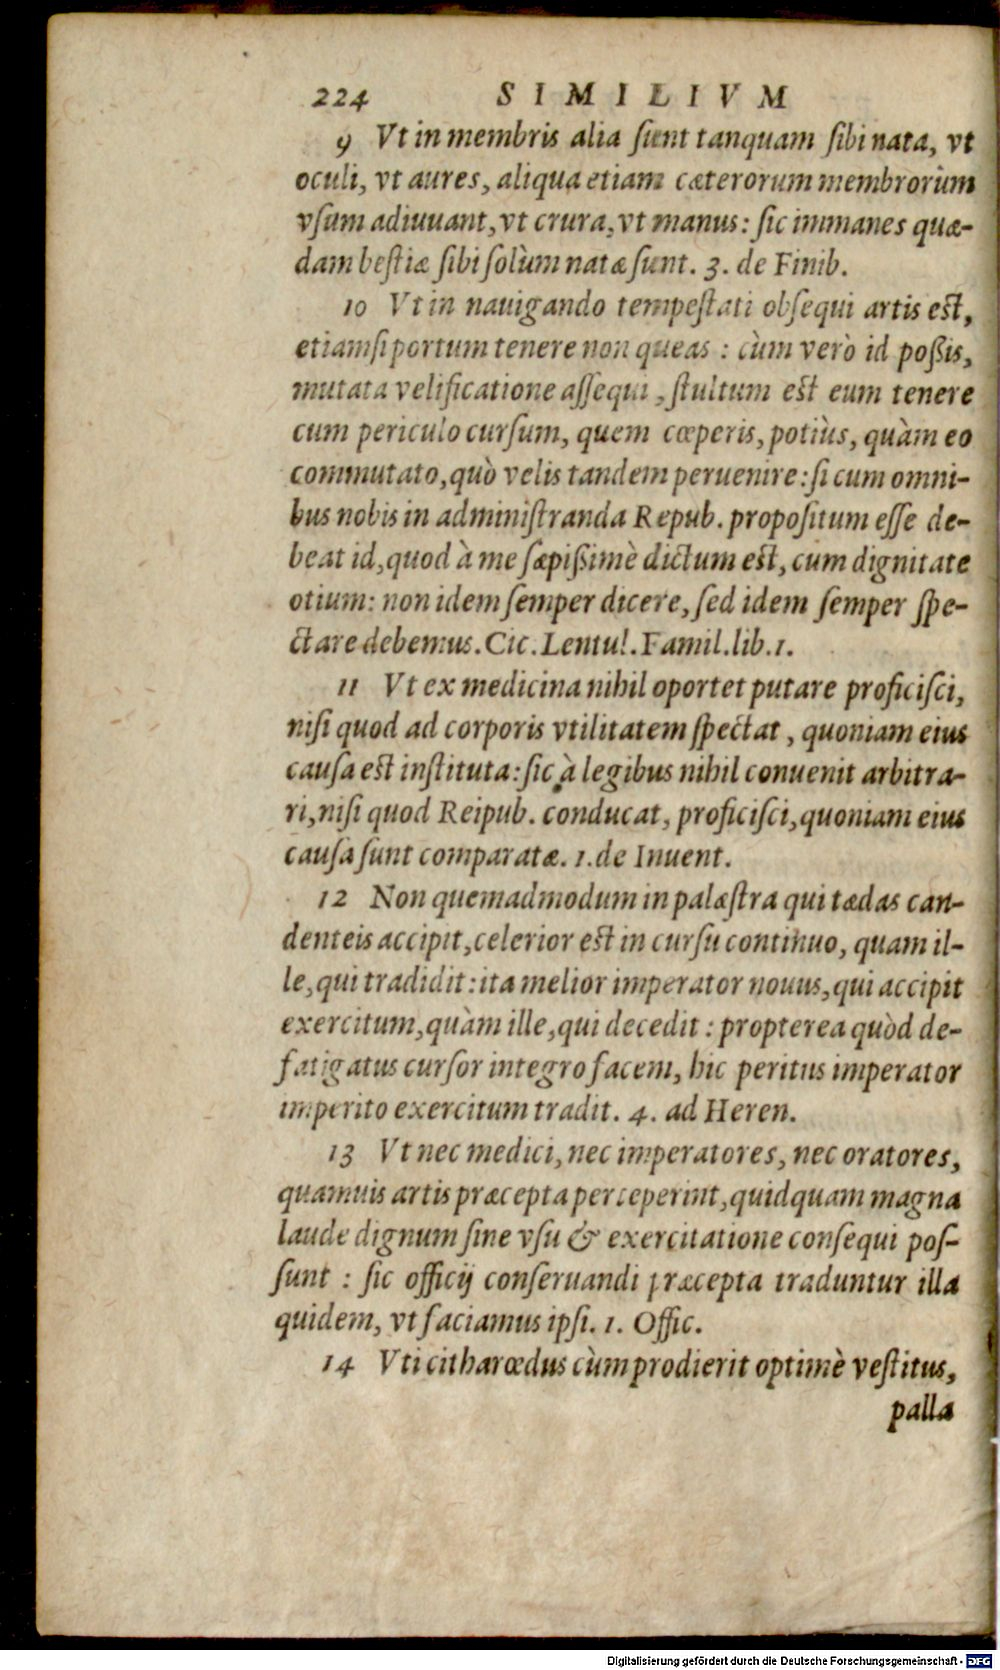 224 SIMILIVM
9 Vt in membris alia sunt tanquam sibi nata, vt
oculi, vt aures, aliqua etiam cæterorum membrorùm
vsum adiuuant, vt crura, vt manus: sic immanes quæ-
dam bestiæ sibi solùm natæ sunt. 3. de Finib.
10 Vt in nauigando tempestati obsequi artis est,
etiamsi portum tenere non queas : cùm verò id poßis,
mutata velificatione assequi, stultum est eum tenere
cum periculo cursum, quem cœperis, potiùs, quàm eo
commutato, quò velis tandem peruenire: si cum omni-
bus nobis in administranda Repub. propositum esse de-
beat id, quod à me sæpißimè dictum est, cum dignitate
otium: non idem semper dicere, sed idem semper spe-
ctare debemus. Cic. Lentul. Famil. lib. 1.
11 Vt ex medicina nihil oportet putare proficisci,
nisi quod ad corporis vtilitatem spectat, quoniam eius
causa est instituta: sic à legibus nihil conuenit arbitra-
ri, nisi quod Reipub. conducat, proficisci, quoniam eius
causa sunt comparatæ. 1. de Inuent.
12 Non quemadmodum in palæstra qui tædas can-
denteis accipit, celerior est in cursu continuo, quam il-
le, qui tradidit: ita melior imperator nouus, qui accipit
exercitum, quàm ille, qui decedit : propterea quòd de-
fatigatus cursor integro facem, hic peritus imperator
imperito exercitum tradit. 4. ad Heren.
13 Vt nec medici, nec imperatores, nec oratores,
quamuis artis præcepta perceperint, quidquam magna
laude dignum sine vsu & exercitatione consequi pos-
sunt : sic officij conseruandi præcepta traduntur illa
quidem, vt faciamus ipsi. 1. Offic.
14 Vti citharœdus cùm prodierit optimè vestitus,
palla
Digitalisierung gefördert durch die Deutsche Forschungsgemeinschaft - DFG